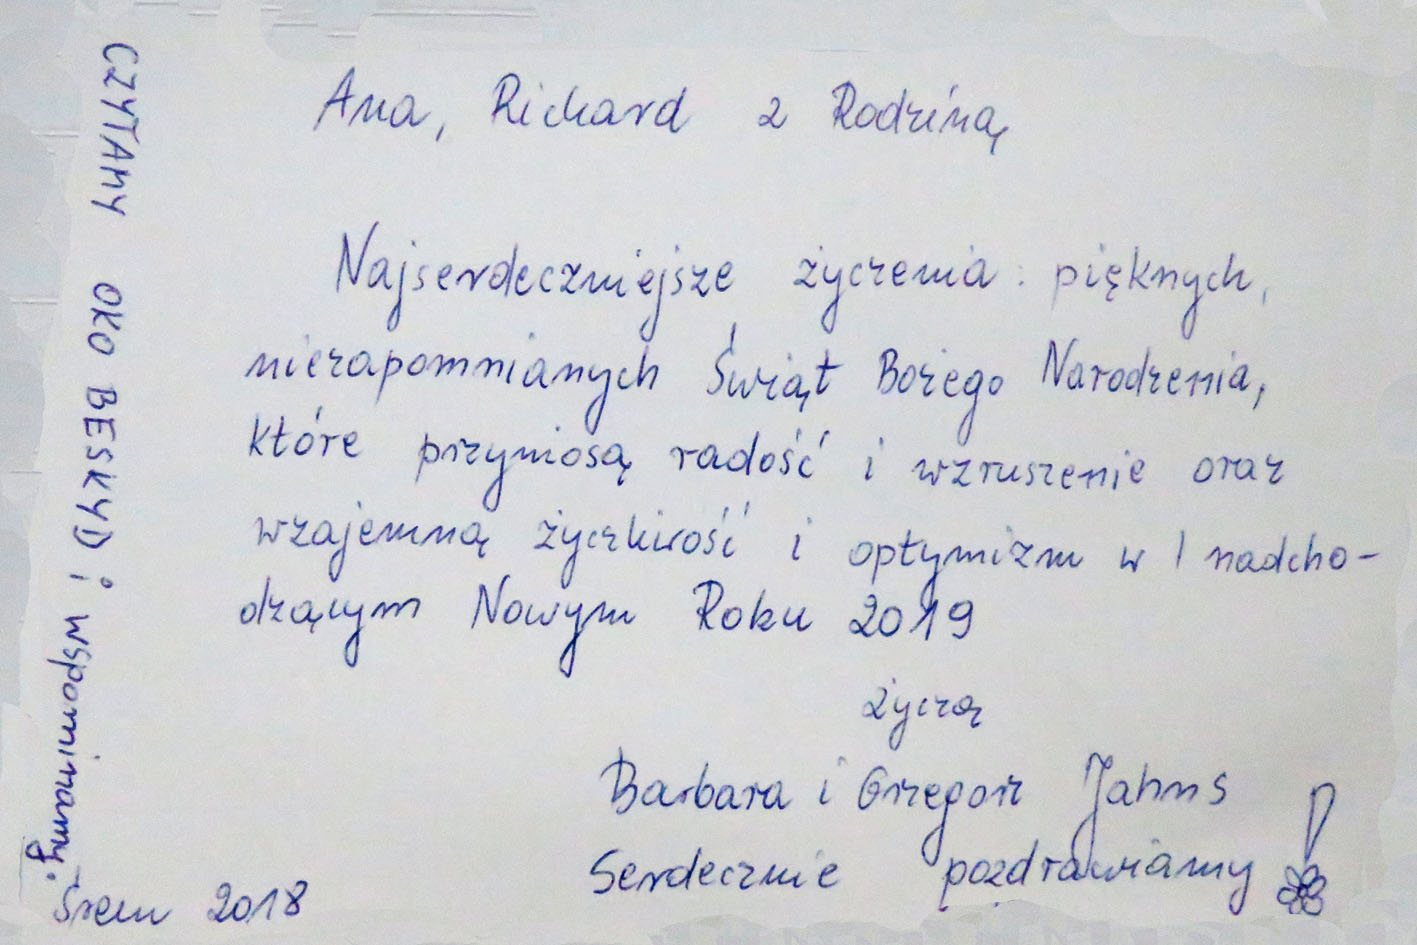 Ana, Richard z Rodziną
Najserdeczniejsze życzenia: pięknych,
niezapomnianych Świąt Bożego Narodzenia,
które przyniosą radość i wzruszenie oraz
wzajemną życzliwość i optymizm w nadcho-
dzącym Nowym Roku 2019
życzą
Barbara i Grzegorz Jahns
Serdecznie pozdrawiamy!
Śrem 2018
CZYTAMY OKO BESKYD i wspominamy.